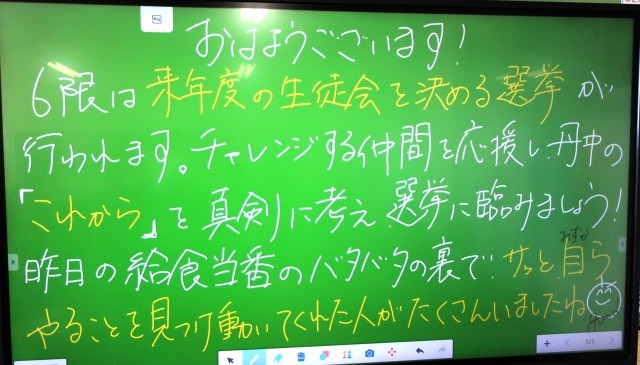 おはようございます!
6限は来年度の生徒会を決める選挙が
行われます。チャレンジする仲間を応援し、丹中の
「これから」を真剣に考え、選挙に臨みましょう!
昨日の給食当番のバタバタの裏で、サッと自ら
みずか
やることを見つけ動いてくれた人がたくさんいましたね
1/1